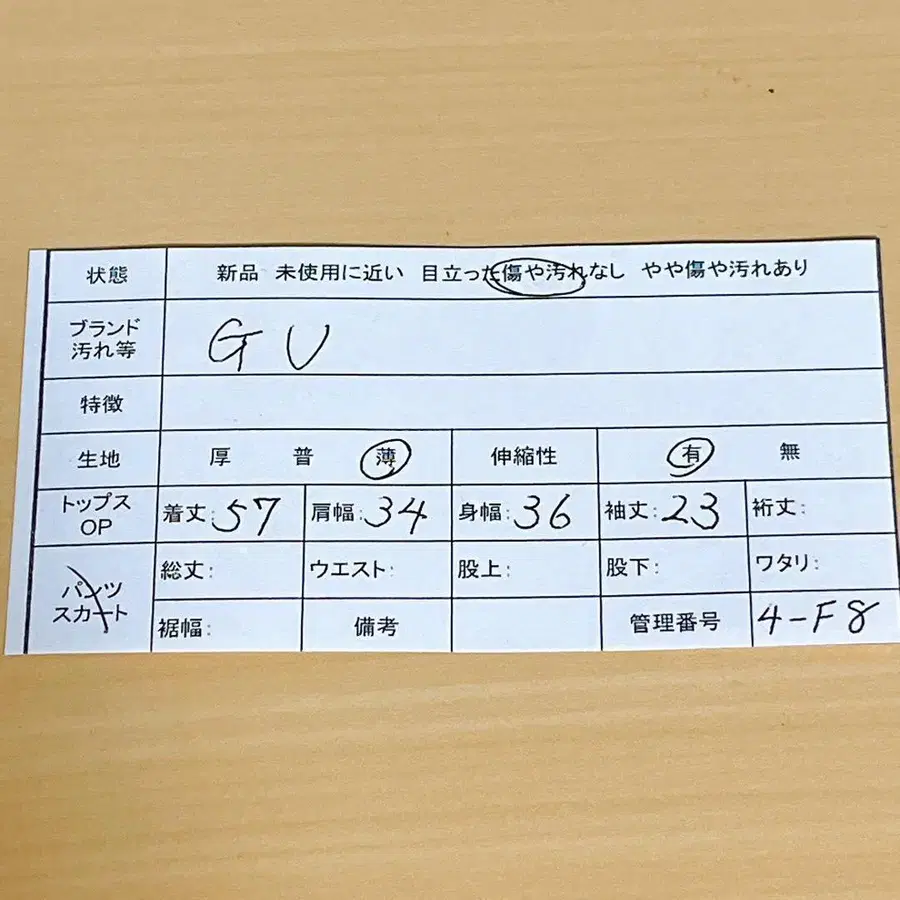 状態 新品 未使用に近い 目立った傷や汚れなし やや傷や汚れあり
ブランド
汚れ等 GU
特徴
生地 厚 普 薄 伸縮性 有 無
トップス
OP 着丈:57 肩幅:34 身幅:36 袖丈:23 裄丈:
パンツ
スカート 総丈: ウエスト: 股上: 股下: ワタリ:
裾幅: 備考 管理番号 4-F8